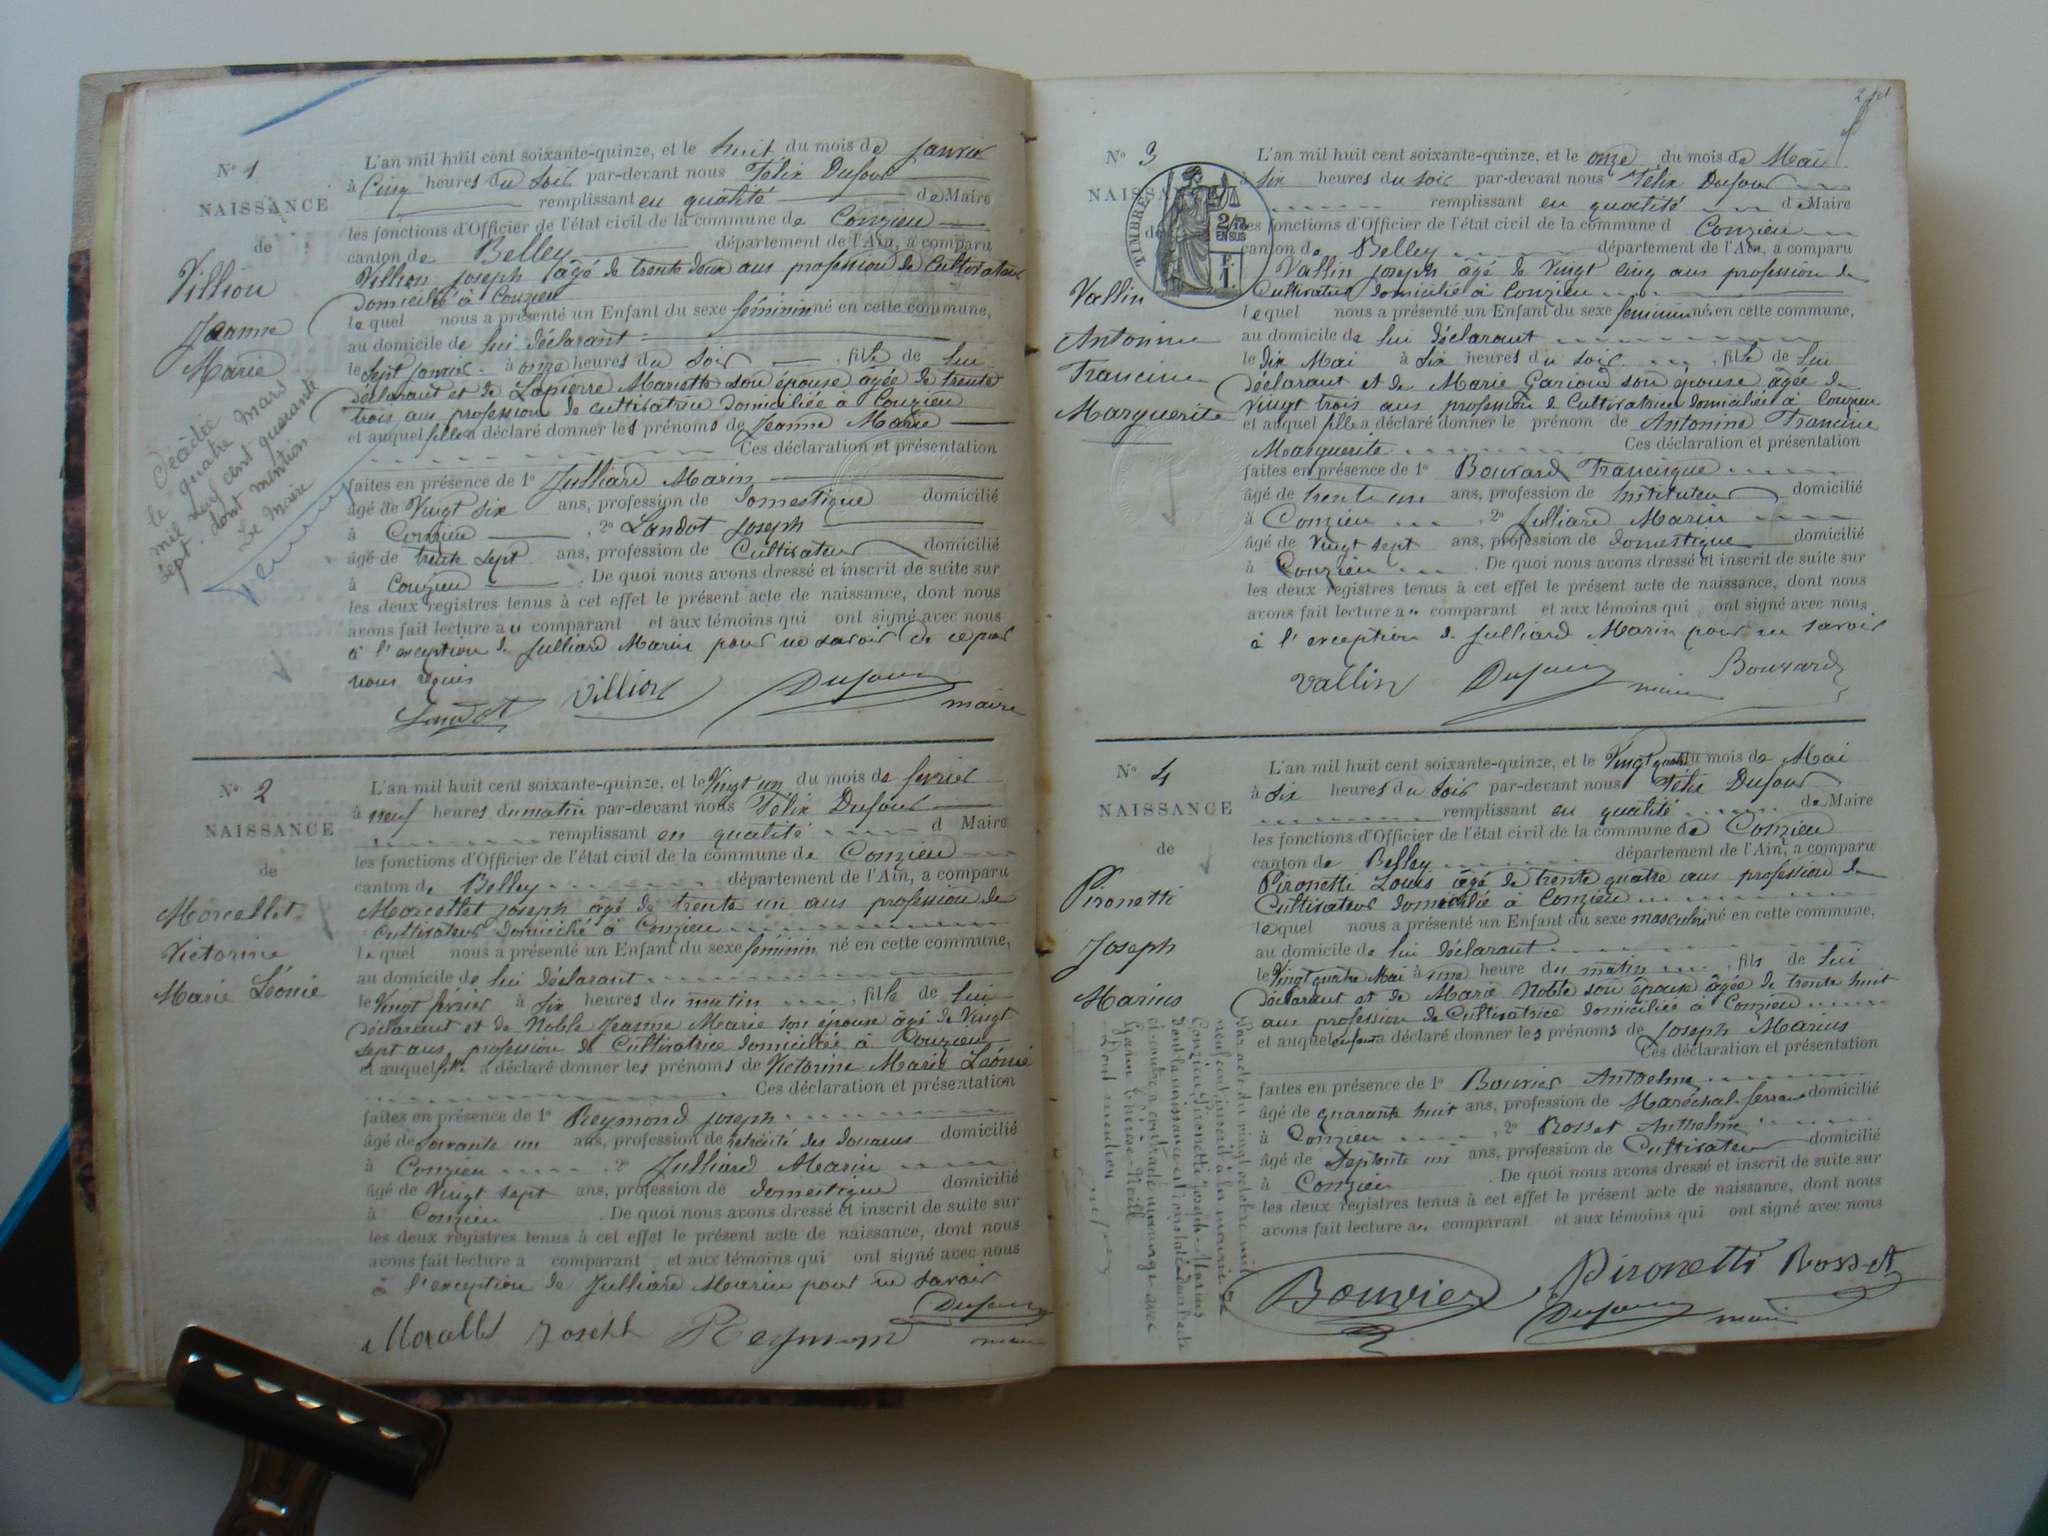 N° 1
NAISSANCE
de
Villion
Jeanne
Marie
Décédée
le quatre mars
mil neuf cent quarante
sept. dont mention
Le Maire
L'an mil huit cent soixante-quinze, et le huit du mois de janvier
à Cinq heures du soir par-devant nous Félix Dufour
remplissant en qualité de Maire
les fonctions d'Officier de l'état civil de la commune de Conzieu
canton de Belley département de l'Ain, a comparu
Villion joseph âgé de trente deux ans profession de Cultivateur
domicilié à Conzieu
lequel nous a présenté un Enfant du sexe féminin né en cette commune,
au domicile de lui déclarant
le sept janvier à onze heures du soir, fille de lui
déclarant et de Lapierre Mariette son épouse âgée de trente
trois ans profession de cultivatrice domiciliée à Conzieu
et auquel fille a déclaré donner les prénoms de Jeanne Marie
Ces déclaration et présentation
faites en présence de 1° Julliard Marin
âgé de Vingt six ans, profession de domestique domicilié
à Conzieu, 2° Landot joseph
âgé de trente sept ans, profession de Cultivateur domicilié
à Conzieu. De quoi nous avons dressé et inscrit de suite sur
les deux registres tenus à cet effet le présent acte de naissance, dont nous
avons fait lecture au comparant et aux témoins qui ont signé avec nous
à l'exception de Julliard Marin pour ne savoir de ce par
nous requis
Landot Villion Dufour
maire
N° 2
NAISSANCE
de
Marcellet
Victorine
Marie Léonie
L'an mil huit cent soixante-quinze, et le Vingt un du mois de fevrier
à neuf heures du matin par-devant nous Félix Dufour
remplissant en qualité d Maire
les fonctions d'Officier de l'état civil de la commune de Conzieu
canton de Belley département de l'Ain, a comparu
Marcellet joseph âgé de trente un ans profession de
Cultivateur domicilié à Conzieu
lequel nous a présenté un Enfant du sexe féminin né en cette commune,
au domicile de lui déclarant
le Vingt février à six heures du matin, fille de lui
déclarant et de Noble Jeanne Marie son épouse âgé de Vingt
sept ans profession de Cultivatrice domiciliée à Conzieu
et auquel fille a déclaré donner les prénoms de Victorine Marie Léonie
Ces déclaration et présentation
faites en présence de 1° Reymond joseph
âgé de soixante un ans, profession de retraité des douanes domicilié
à Conzieu, 2° Julliard Marin
âgé de Vingt sept ans, profession de domestique domicilié
à Conzieu. De quoi nous avons dressé et inscrit de suite sur
les deux registres tenus à cet effet le présent acte de naissance, dont nous
avons fait lecture a comparant et aux témoins qui ont signé avec nous
à l'exception de Julliard Marin pour ne savoir
Marcellet Joseph Reymond Dufour
maire
N° 3
NAISSANCE
de
TIMBRES
2/10
EN SUS
F.
1.
Vallin
Antonine
Francine
Marguerite
L'an mil huit cent soixante-quinze, et le onze du mois de Mai
à six heures du soir par-devant nous Félix Dufour
remplissant en qualité de Maire
les fonctions d'Officier de l'état civil de la commune d Conzieu
canton de Belley département de l'Ain, a comparu
Vallin joseph âgé de vingt cinq ans profession de
Cultivateur domicilié à Conzieu
lequel nous a présenté un Enfant du sexe feminin né en cette commune,
au domicile de lui déclarant
le dix Mai à six heures du soir, fille de lui
déclarant et de Marie Garioud son épouse âgée de
vingt trois ans profession de Cultivatrice domiciliée à Conzieu
et auquel fille a déclaré donner le prénom de Antonine Francine
Marguerite Ces déclaration et présentation
faites en présence de 1° Bouvard Francisque
âgé de trente un ans, profession de Instituteur domicilié
à Conzieu, 2° Julliard Marin
âgé de Vingt sept ans, profession de domestique domicilié
à Conzieu. De quoi nous avons dressé et inscrit de suite sur
les deux registres tenus à cet effet le présent acte de naissance, dont nous
avons fait lecture au comparant et aux témoins qui ont signé avec nous
à l'exception de Julliard Marin pour ne savoir
Vallin Dufour maire Bouvard
N° 4
NAISSANCE
de
Pironetti
Joseph
Marius
Par acte du vingt octobre mil
neuf cent inscrit à la mairie de
Conzieu Pironetti Joseph-Marius
dont la naissance est constatée dans l'acte
ci-contre a contracté mariage avec
Dont mention
L'an mil huit cent soixante-quinze, et le Vingt quatre du mois de Mai
à six heures du soir par-devant nous Félix Dufour
remplissant en qualité de Maire
les fonctions d'Officier de l'état civil de la commune de Conzieu
canton de Belley département de l'Ain, a comparu
Pironetti Louis âgé de trente quatre ans profession de
Cultivateur domicilié à Conzieu
lequel nous a présenté un Enfant du sexe masculin né en cette commune,
au domicile de lui déclarant
le Vingt quatre Mai à une heure du matin, fils de lui
déclarant et de Marie Noble son épouse âgée de trente huit
ans profession de Cultivatrice domiciliée à Conzieu
et auquel enfant a déclaré donner les prénoms de Joseph Marius
Ces déclaration et présentation
faites en présence de 1° Bouvier Anthelme
âgé de quarante huit ans, profession de Maréchal ferrant domicilié
à Conzieu, 2° Rosset Anthelme
âgé de Septante un ans, profession de Cultivateur domicilié
à Conzieu. De quoi nous avons dressé et inscrit de suite sur
les deux registres tenus à cet effet le présent acte de naissance, dont nous
avons fait lecture au comparant et aux témoins qui ont signé avec nous
Bouvier Pironetti Rosset
Dufour maire